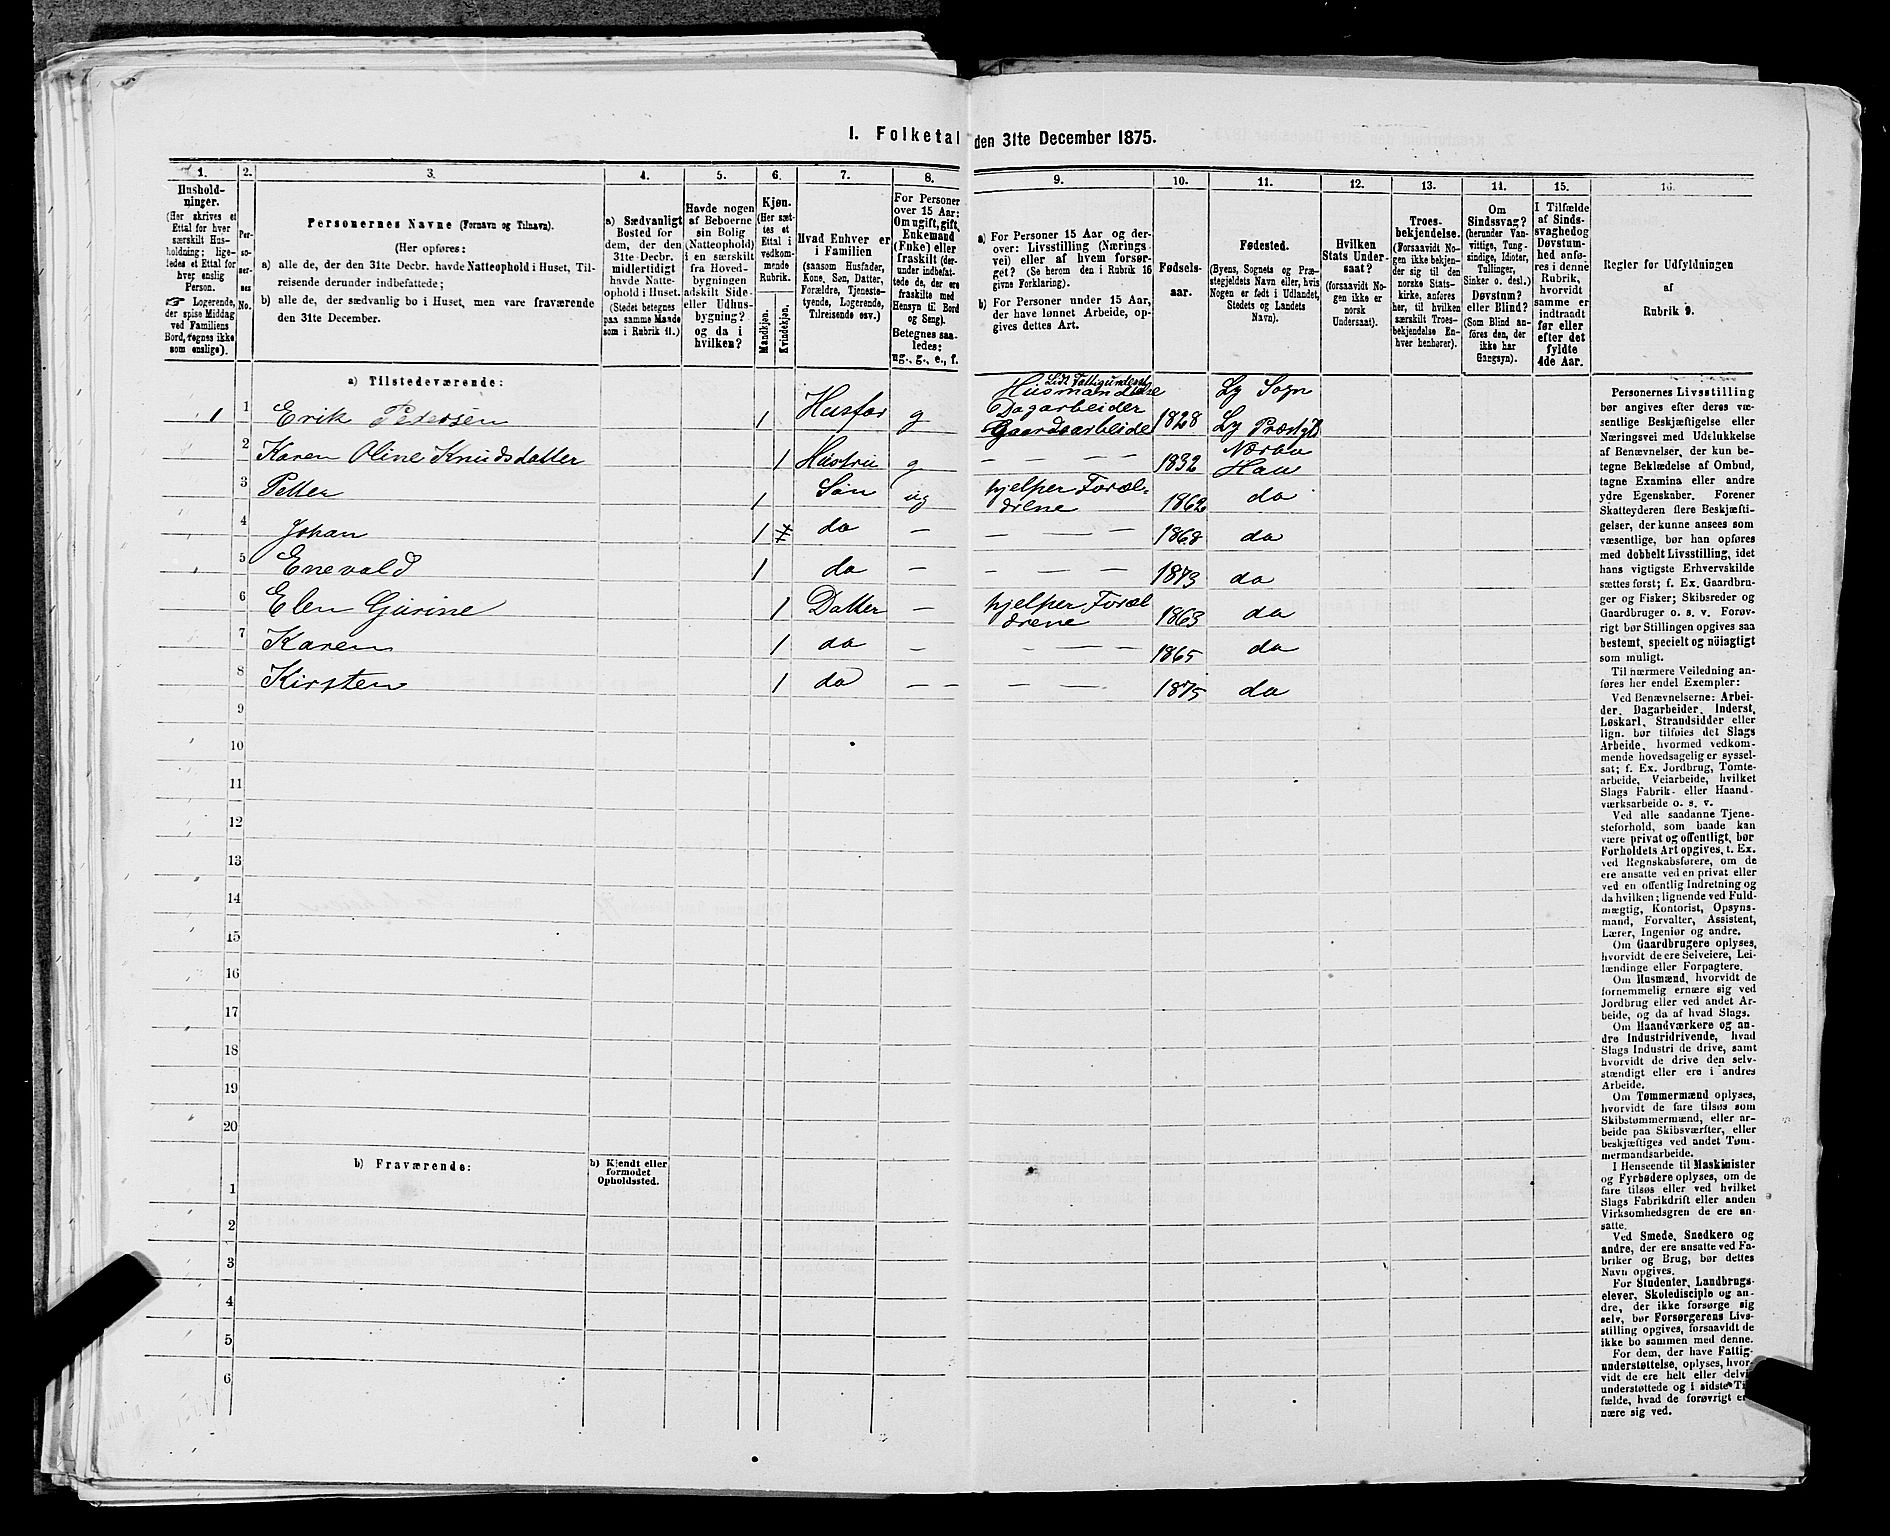 I. Folketal den 31te December 1875.
1. 2. 3. 4. 5. 6. 7. 8. 9. 10. 11. 12. 13. 14. 15. 16.
Hushold-
ninger.
(Her skrives et
Ettal for hver
særskilt Hus-
holdning; lige-
ledes et Ettal for
hver enslig
Person.
☞ Logerende,
der spise Middag
ved Familiens
Bord, regnes ikke
som enslige).
Per-
so-
ner-
nes
No.
Personernes Navne (Fornavn og Tilnavn).
(Her opføres:
a) alle de, der den 31te Decbr. havde Natteophold i Huset, Til-
reisende derunder indbefattede;
b) alle de, der sædvanlig bo i Huset, men vare fraværende
den 31te December.
a) Sædvanligt
Bosted for
dem, der den
31te Decbr.
midlertidigt
havde Natte-
ophold i Huset.
(Stedet betegnes
paa samme Maade
som i Rubrik 11.)
Havde nogen
af Beboerne
sin Bolig
(Natteophold)
i en særskilt
fra Hoved-
bygningen
adskilt Side-
eller Udhus-
bygning?
og da i
hvilken?
Kjøn.
(Her sæt-
tes et
Ettal i
vedkom-
mende
Rubrik.
Mandkjøn.
Kvindekjøn.
Hvad Enhver er
i Familien
(saasom Husfader,
Kone, Søn, Datter,
Forældre, Tjeneste-
tyende, Logerende,
Tilreisende osv.)
For Personer
over 15 Aar:
Om ugift, gift,
Enkemand
(Enke) eller
fraskilt (der-
under indbefat-
tede de, der ere
fraskilte med
Hensyn til Bord
og Seng).
Betegnes saa-
ledes:
ug., g., e., f.
a) For Personer 15 Aar og der-
over: Livsstilling (Nærings-
vei) eller af hvem forsør-
get? (Se herom den i Rubrik 16
givne Forklaring).
b) For Personer under 15 Aar,
der have lønnet Arbeide, op-
gives dettes Art.
Fødsels-
aar.
Fødested.
(Byens, Sognets og Præ-
stegjeldets Navn eller, hvis
Nogen er født i Udlandet,
Stedets og Landets
Navn).
Hvilken
Stats Under-
saat?
(forsaavidt No-
gen ikke er
norsk
Undersaat).
Troes-
bekjendelse.
(Forsaavidt No-
gen ikke bekjen-
der sig til den
norske Stats-
kirke, anføres
her, til hvilken
særskilt Troes-
bekjendelse En-
hver henhører).
Om
Sindssvag?
(herunder Van-
vittige, Tung-
sindige, Idioter,
Tullinger,
Sinker o. desl.)
Døvstum?
eller Blind?
(Som Blind an-
føres den, der
ikke har
Gangsyn).
I Tilfælde
af Sinds-
svaghed og
Døvstum-
hed anfø-
res i denne
Rubrik,
hvorvidt
samme er
indtraadt
før eller
efter det
fyldte
4de Aar.
Regler for Udfyldningen
af
Rubrik 9.
a) Tilstedeværende:
1 1 Erik Pedersen 1 Husfar g Dagarbeider 1828 Ly Sogn
Ly Præstgjd
2 Karen Oline Knudsdatter 1 Hustru g — — — 1832 Nærbø
3 Petter 1 Søn ug hjelper Foræl-
drene 1862 do
4 Johan 1 do — — — — 1868 do
5 Enevald 1 do — — — — 1873 do
6 Elen Gurine 1 Datter — hjelper Foræl
drene 1863 do
7 Karen 1 do — — — — 1865 do
8 Kirsten 1 do — — — — 1875 do
9
10
11
12
13
14
15
16
17
18
19
20
b) Fraværende:
b) Kjendt eller
formodet
Opholdssted.
1
2
3
4
5
6
Personernes Livsstilling
bør angives efter deres væ-
sentlige Beskjæftigelse eller
Næringsvei med Udelukkelse
af Benævnelser, der kun be-
tegne Beklædelse af Ombud,
tagne Examina eller andre
ydre Egenskaber. Forener
Skatteyderen flere Beskjæfti-
gelser, der kunne ansees som
væsentlige, bør han opføres
med dobbelt Livsstilling, idet
hans vigtigste Erhvervskilde
sættes først; f. Ex. Gaardbru-
ger og Fisker; Skibsreder og
Gaardbruger o. s. v. Forøv-
rigt bør Stillingen opgives saa
bestemt, specielt og nöiagtigt
som muligt.
Til nærmere Veiledning an-
føres her endel Exempler:
Ved Benævnelserne: Arbei-
der, Dagarbeider, Inderst,
Løskarl, Strandsidder eller
lign. bør tilføies det Slags
Arbeide, hvormed vedkom-
mende hovedsagelig er syssel-
sat; f. Ex. Jordbrug, Tomte-
arbeide, Veiarbeide, hvilket
Slags Fabrik- eller Haand-
værksarbeide o. s. v.
Ved alle saadanne Tjene-
steforhold, som baade kan
være privat og offentligt, bør
Forholdets Art opgives, t. Ex.
ved Regnskabsførere, om de
ere ansatte ved en privat eller
ved en offentlig Indretning og
da hvilken; lignende ved Fuld-
mægtig, Kontorist, Opsyns-
mand, Forvalter, Assistent,
Lærer, Ingeniør og andre.
Om Gaardbrugere oplyses,
hvorvidt de ere Selveiere, Lei-
lændinge eller Forpagtere.
Om Husmænd, hvorvidt de
fornemmelig ernære sig ved
Jordbrug eller ved andet Ar-
beide, og da af hvad Slags.
Om Haandværkere og an-
dre Industridrivende, hvad
Slags Industri de drive, samt
hvorvidt de drive den selv-
stændigt eller ere i andres
Arbeide.
Om Tømmermænd oplyses,
hvorvidt de fare tilsøs som
Skibstømmermænd, eller ar-
beide paa Skibsværfter, eller
beskjæftiges ved andet Tøm-
mermandsarbeide.
I Henseende til Maskinister
og Fyrbødere oplyses, om de
fare tilsøs eller ved hvilket
Slags Fabrikdrift eller anden
Virksomhedsgren de ere an-
satte.
Ved Smede, Snedkere og
andre, der ere ansatte ved Fa-
briker og Brug, bør dettes
Navn opgives.
For Studenter, Landbrugs-
elever, Skoledisciple og an-
dre, der ikke forsørge sig
selv, bør Forsørgerens Livs-
stilling opgives, forsaavidt de
ikke bo sammen med denne.
For dem, der have Fattig-
understøttelse, oplyses, hvor-
vidt de ere helt eller delvis
understøttede og i sidste Til-
fælde, hvad de forøvrigt er-
nære sig ved.